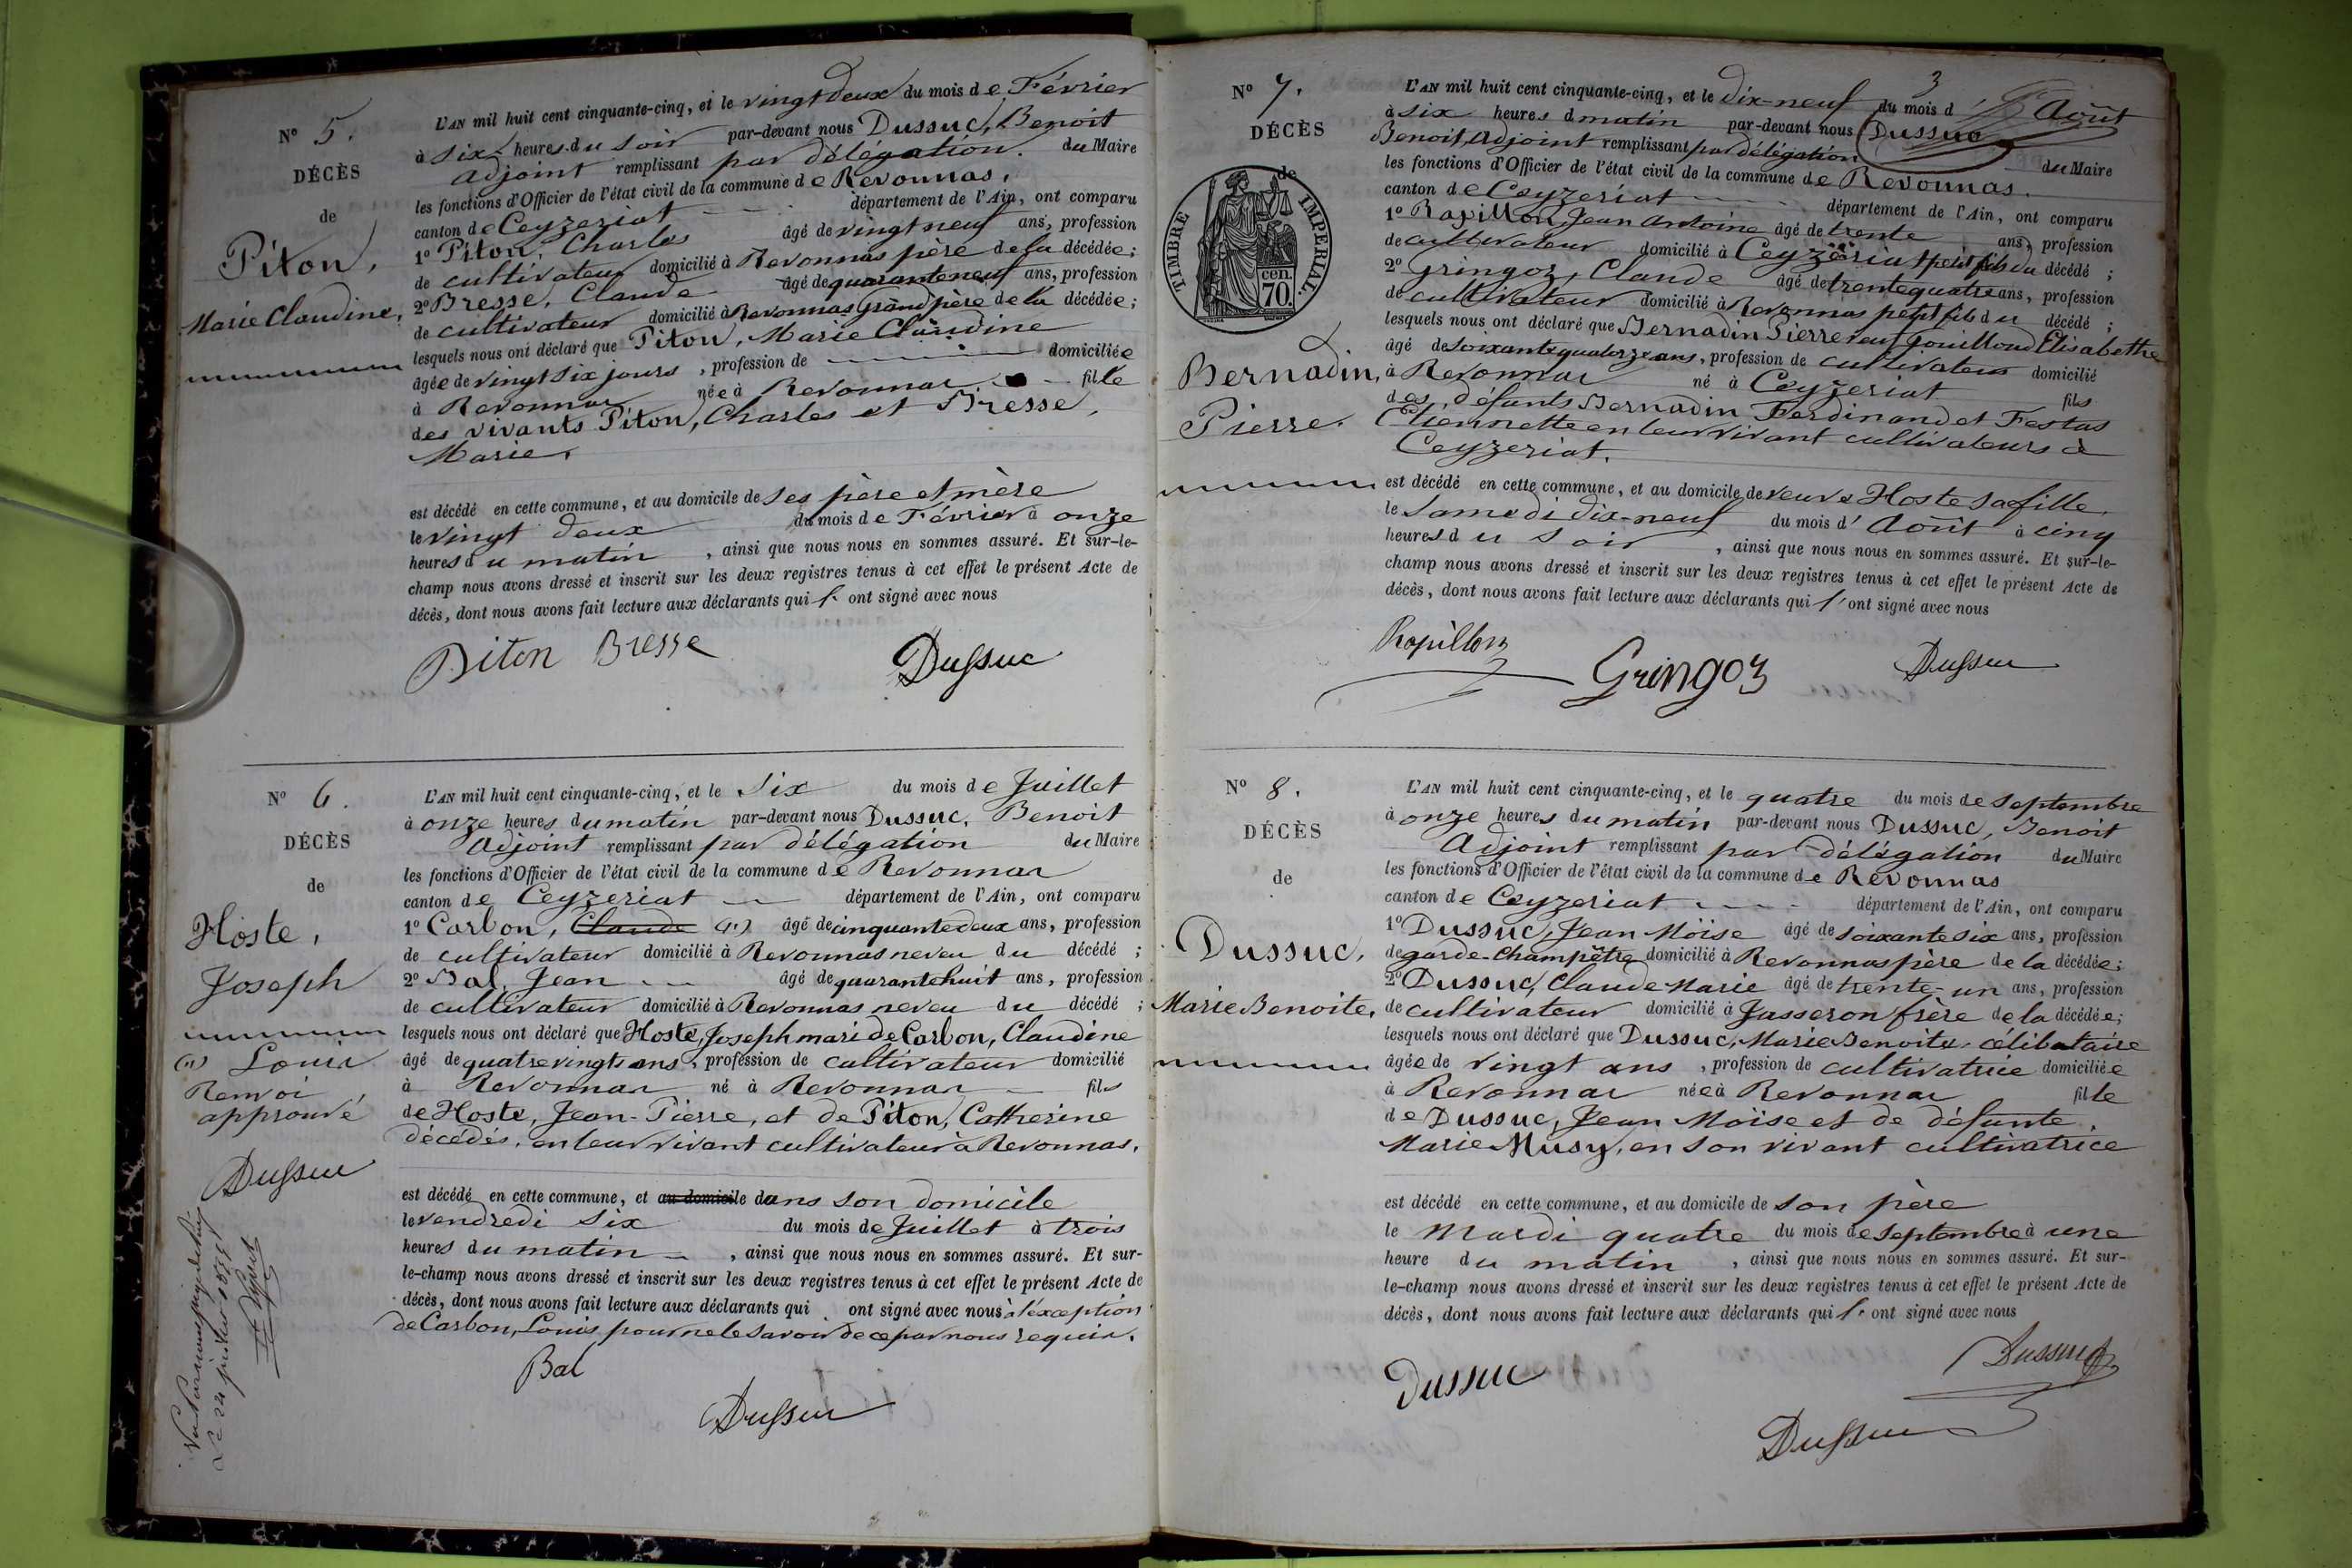 N° 5.
DÉCÈS
de
Piton,
Marie Claudine,
L'AN mil huit cent cinquante-cinq, et le vingt deux du mois de Février
à six heures du soir par-devant nous Dussuc, Benoit
adjoint remplissant par délégation du Maire
les fonctions d'Officier de l'état civil de la commune de Revonnas,
canton de Ceyzeriat département de l'Ain, ont comparu
1° Piton, Charles âgé de vingt neuf ans, profession
de cultivateur domicilié à Revonnas père de la décédée;
2° Bresse, Claude âgé de quarante neuf ans, profession
de cultivateur domicilié à Revonnas Grand père de la décédée;
lesquels nous ont déclaré que Piton, Marie Claudine
âgée de vingt six jours, profession de domiciliée
à Revonnas née à Revonnas fille
des vivants Piton, Charles et Bresse,
Marie.
est décédé en cette commune, et au domicile de ses père et mère
le vingt deux du mois de Février à onze
heures du matin, ainsi que nous nous en sommes assuré. Et sur-le-
champ nous avons dressé et inscrit sur les deux registres tenus à cet effet le présent Acte de
décès, dont nous avons fait lecture aux déclarants qui l' ont signé avec nous
Piton Bresse Dussuc
N° 6.
DÉCÈS
de
Hoste,
Joseph
(1) Louis
Renvoi
approuvé
Dussuc
L'AN mil huit cent cinquante-cinq, et le six du mois de Juillet
à onze heures du matin par-devant nous Dussuc, Benoit
adjoint remplissant par délégation du Maire
les fonctions d'Officier de l'état civil de la commune de Revonnas
canton de Ceyzeriat département de l'Ain, ont comparu
1° Carbon, Claude (1) âgé de cinquante deux ans, profession
de cultivateur domicilié à Revonnas neveu du décédé;
2° Bal, Jean âgé de quarante huit ans, profession
de cultivateur domicilié à Revonnas neveu du décédé;
lesquels nous ont déclaré que Hoste, Joseph mari de Carbon, Claudine
âgé de quatre vingts ans, profession de cultivateur domicilié
à Revonnas né à Revonnas fils
de Hoste, Jean-Pierre, et de Piton, Catherine
décédés, en leur vivant cultivateur à Revonnas.
est décédé en cette commune, et au domicile dans son domicile
le vendredi six du mois de Juillet à trois
heures du matin, ainsi que nous nous en sommes assuré. Et sur-
le-champ nous avons dressé et inscrit sur les deux registres tenus à cet effet le présent Acte de
décès, dont nous avons fait lecture aux déclarants qui ont signé avec nous à l'exception
de Carbon, Louis pour ne le savoir de ce par nous requis.
Bal
Dussuc
3
N° 7.
DÉCÈS
de
TIMBRE IMPERIAL
70 cen.
Bernadin,
Pierre.
L'AN mil huit cent cinquante-cinq, et le dix-neuf du mois d'Août
à six heures d matin par-devant nous Dussuc
Benoit, adjoint remplissant par délégation du Maire
les fonctions d'Officier de l'état civil de la commune de Revonnas.
canton de Ceyzeriat département de l'Ain, ont comparu
1° Rapillon, Jean Antoine âgé de trente ans, profession
de cultivateur domicilié à Ceyzériat petit fils du décédé;
2° Gringoz, Claude âgé de trente quatre ans, profession
de cultivateur domicilié à Revonnas petit fils du décédé;
lesquels nous ont déclaré que Bernadin Pierre veuf Gouilloud Elisabethe
âgé de soixante quatorze ans, profession de cultivateur domicilié
à Revonnas né à Ceyzeriat fils
des défunts Bernadin Ferdinand et Festas
Etiennette en leur vivant cultivateurs à
Ceyzeriat.
est décédé en cette commune, et au domicile de veuve Hoste sa fille.
le samedi dix-neuf du mois d'Août à cinq
heures du soir, ainsi que nous nous en sommes assuré. Et sur-le-
champ nous avons dressé et inscrit sur les deux registres tenus à cet effet le présent Acte de
décès, dont nous avons fait lecture aux déclarants qui l' ont signé avec nous
Rapillon Gringoz Dussuc
N° 8.
DÉCÈS
de
Dussuc,
Marie Benoite,
L'AN mil huit cent cinquante-cinq, et le quatre du mois de septembre
à onze heures du matin par-devant nous Dussuc, Benoit
Adjoint remplissant par délégation du Maire
les fonctions d'Officier de l'état civil de la commune de Revonnas
canton de Ceyzeriat département de l'Ain, ont comparu
1° Dussuc, Jean Möise âgé de soixante six ans, profession
de garde-champêtre domicilié à Revonnas père de la décédée;
2° Dussuc, Claude Marie âgé de trente-un ans, profession
de cultivateur domicilié à Jasseron frère de la décédée;
lesquels nous ont déclaré que Dussuc, Marie Benoite, célibataire
âgée de vingt ans, profession de cultivatrice domiciliée
à Revonnas née à Revonnas fille
de Dussuc, Jean Moïse et de défunte
Marie Musy, en son vivant cultivatrice
est décédé en cette commune, et au domicile de son père
le Mardi quatre du mois de septembre à une
heure du matin, ainsi que nous nous en sommes assuré. Et sur-
le-champ nous avons dressé et inscrit sur les deux registres tenus à cet effet le présent Acte de
décès, dont nous avons fait lecture aux déclarants qui l' ont signé avec nous
Dussuc Dussuc
Dussuc